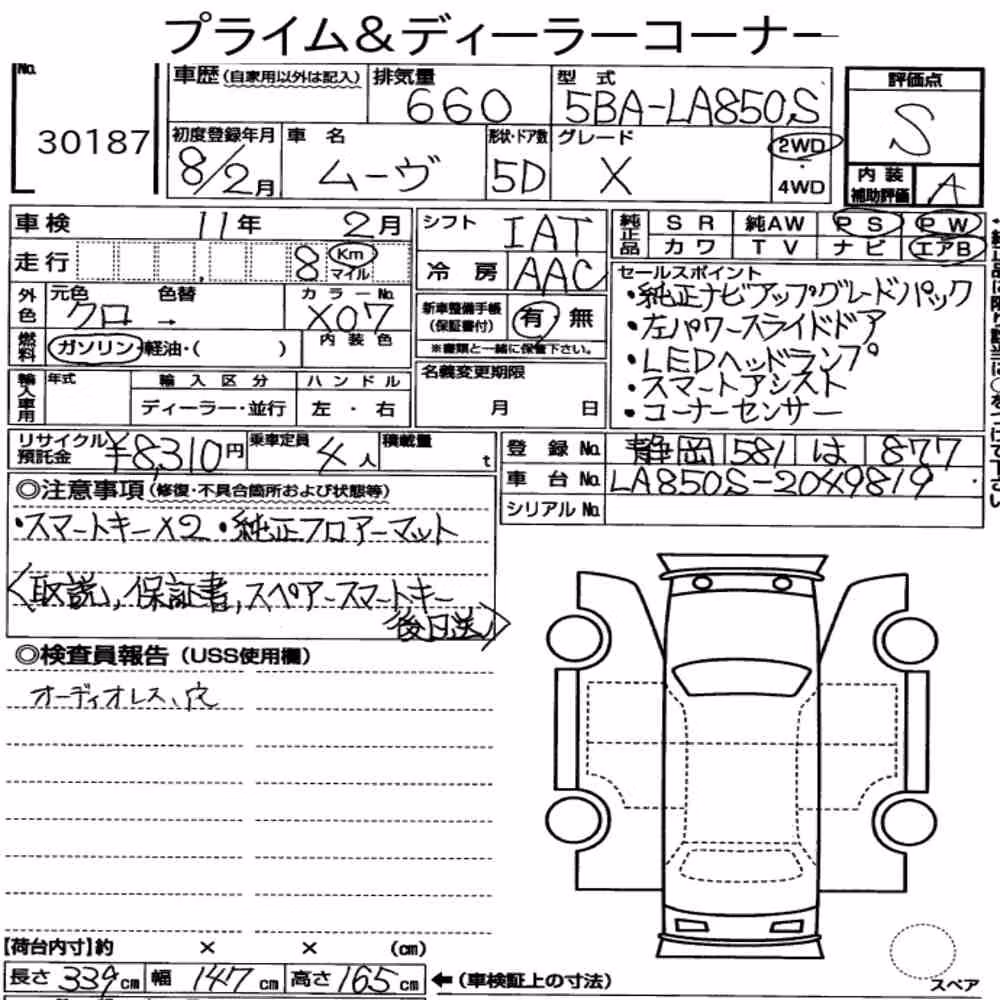 プライム&ディーラーコーナー
No.
30187
車歴(自家用以外は記入)
排気量
660
型式
5BA-LA850S
評価点
S
初度登録年月
8/2月
車名
ムーヴ
形状・ドア数
5D
グレード
X
2WD
・
4WD
内装
補助評価
A
車検 11年 2月
シフト
IAT
純正品
SR 純AW PS PW
カワ TV ナビ エアB
走行 8 Km
マイル
冷房
AAC
セールスポイント
・純正ナビアップグレードパック
・左パワースライドドア
・LEDヘッドランプ
・スマートアシスト
・コーナーセンサー
外色
元色 色替
クロ →
カラーNo.
X07
新車整備手帳
(保証書付)
有・無
※書類と一緒に保管下さい。
燃料
ガソリン・軽油・( )
内装色
名義変更期限
月 日
輸入車用
年式
輸入区分
ディーラー・並行
ハンドル
左・右
リサイクル
預託金
¥8,310円
乗車定員
4人
積載量
t
登録No. 静岡 581 は 877
車台No. LA850S-2049819
シリアルNo.
◎注意事項(修復・不具合箇所および状態等)
・スマートキーX2 ・純正フロアーマット
〈取説, 保証書, スペアースマートキー
後日送〉
◎検査員報告(USS使用欄)
オーディオレス、穴
【荷台内寸】約 × × (cm)
長さ 339cm 幅 147cm 高さ 165cm ←(車検証上の寸法)
スペア